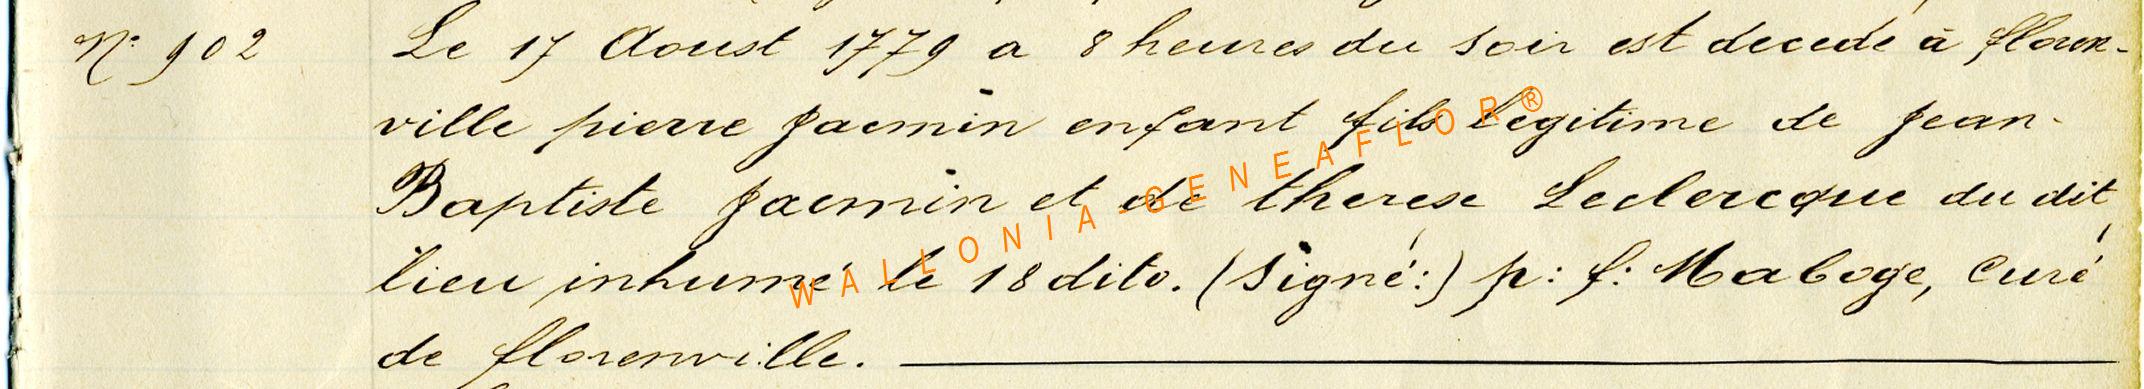 N° 902 Le 17 Aoust 1779 a 8 heures du soir est decede à floren-
ville pierre Jacmin enfant fils legitime de Jean-
Baptiste Jacmin et de therese Leclercque du dit
lieu inhumé le 18 dito. (Signé:) p: f: Maboge, Curé
de florenville.
WALLONIA-GENEAFLOR®